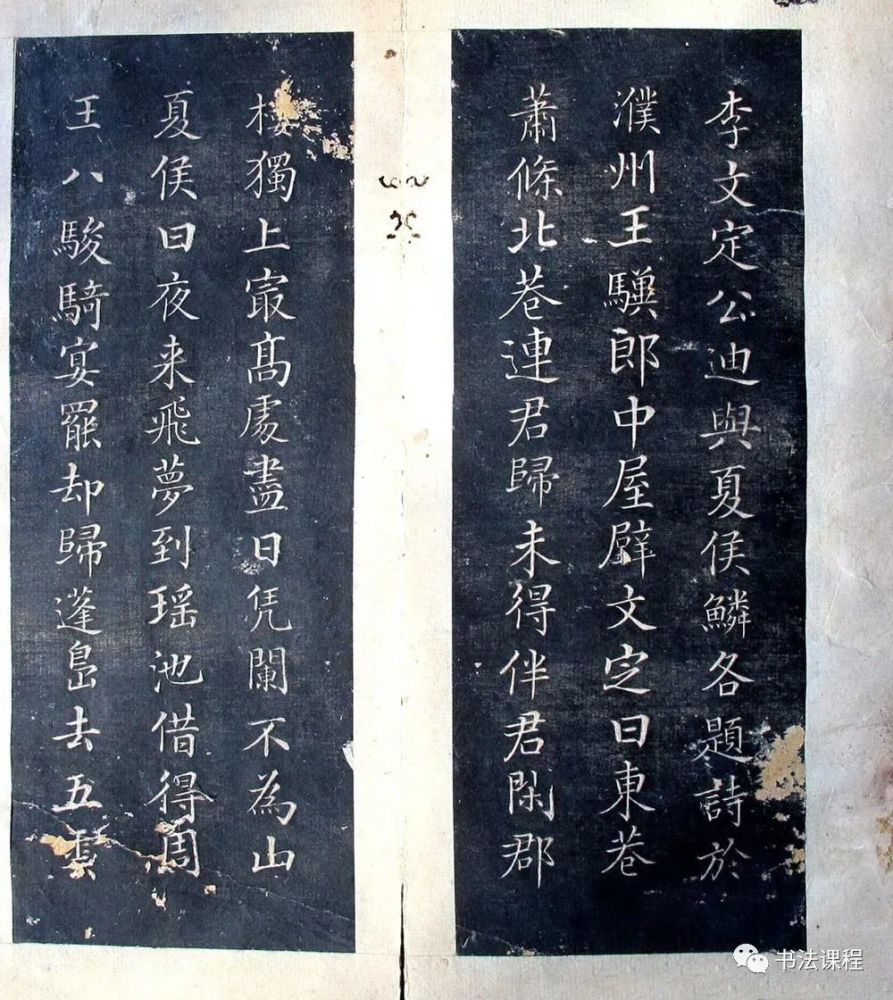 李文定公迪與夏侯鱗各題詩於
濮州王驥郎中屋壁文定曰東巷
蕭條北巷連君歸未得伴君閑郡
樓獨上冣髙處盡日凭闌不為山
夏侯曰夜来飛夢到瑶池借得周
王八駿騎宴罷却歸蓬島去五雲
书法课程